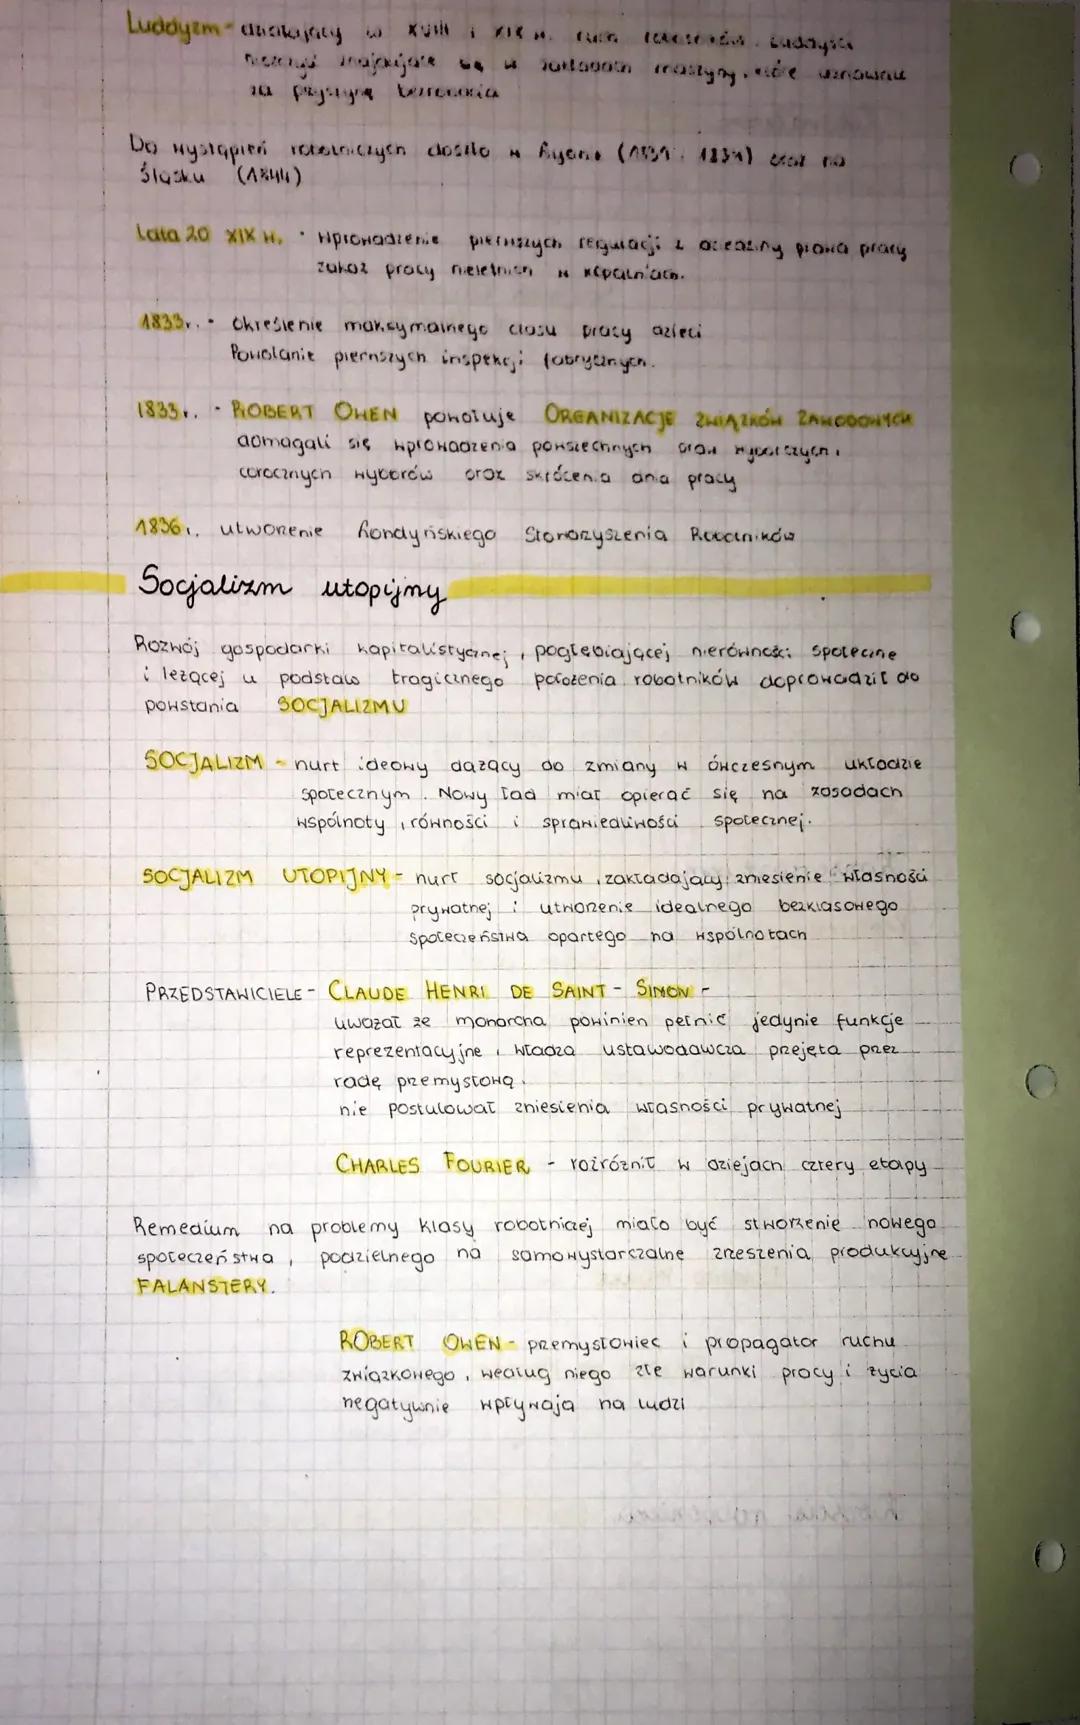 Luddyzm - działający w XVIII i XIX w. ruch robotników. Luddyści
niszczyli znajdujące się w zakładach maszyny, które uznawali
za przyczynę bezrobocia
Do wystąpień robotniczych doszło w Lyonie (1831, 1834) oraz na
Śląsku (1844)
Lata 20 XIX w. • wprowadzenie pierwszych regulacji z dziedziny prawa pracy
zakaz pracy nieletnich w kopalniach.
1833r. • Określenie maksymalnego czasu pracy dzieci
Powołanie pierwszych inspekcji fabrycznych.
1833r. • ROBERT OWEN powołuje ORGANIZACJĘ ZWIĄZKÓW ZAWODOWYCH
domagali się wprowadzenia powszechnych praw wyborczych,
corocznych wyborów oraz skrócenia dnia pracy
1836r. utworzenie Londyńskiego Stowarzyszenia Robotników
Socjalizm utopijny
Rozwój gospodarki kapitalistycznej, pogłębiającej nierówności społeczne
i leżącej u podstaw tragicznego położenia robotników doprowadził do
powstania SOCJALIZMU
SOCJALIZM - nurt ideowy dążący do zmiany w ówczesnym układzie
społecznym. Nowy ład miał opierać się na zasadach
wspólnoty, równości i sprawiedliwości społecznej.
SOCJALIZM UTOPIJNY - nurt socjalizmu, zakładający zniesienie własności
prywatnej i utworzenie idealnego bezklasowego
społeczeństwa opartego na wspólnotach
PRZEDSTAWICIELE - CLAUDE HENRI DE SAINT - SIMON -
uważał że monarcha powinien pełnić jedynie funkcje
reprezentacyjne, władza ustawodawcza przejęta przez
radę przemysłową.
nie postulował zniesienia własności prywatnej
CHARLES FOURIER - rozróżnił w dziejach cztery etapy
Remedium na problemy klasy robotniczej miało być stworzenie nowego
społeczeństwa, podzielnego na samowystarczalne zrzeszenia produkcyjne
FALANSTERY.
ROBERT OWEN - przemysłowiec i propagator ruchu
związkowego, według niego złe warunki pracy i życia
negatywnie wpływają na ludzi